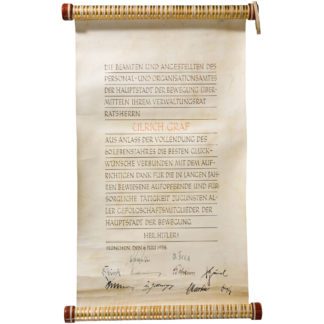 DIE BEAMTEN UND ANGESTELLTEN DES
PERSONAL- UND ORGANISATIONSAMTES
DER HAUPTSTADT DER BEWEGUNG ÜBER-
MITTELN IHREM VERWALTUNGSRAT
RATSHERRN
ULRICH GRAF
AUS ANLASS DER VOLLENDUNG DES
60. LEBENSJAHRES DIE BESTEN GLÜCK-
WÜNSCHE VERBUNDEN MIT DEM AUF-
RICHTIGEN DANK FÜR DIE IN LANGEN JAH-
REN BEWIESENE AUFOPFERNDE UND FÜR-
SORGLICHE TÄTIGKEIT ZUGUNSTEN AL-
LER GEFOLGSCHAFTSMITGLIEDER DER
HAUPTSTADT DER BEWEGUNG
HEIL HITLER!
MÜNCHEN, DEN 6. JULI 1938